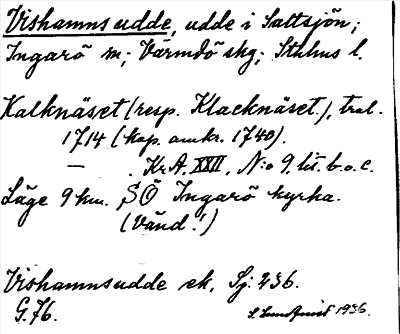 Vishamns udde, udde i Saltsjön;
Ingarö sn; Värmdö skg; Sthlms l.
Kalknäset (resp. Klacknäset), trol.
1714 (kop. omkr. 1740).
— . Kr.A. XXII, N:o 9, lit. b. o. c.
Läge 9 km. SÖ Ingarö kyrka.
(Vänd!)
Vishamnsudde ek. Sj. 236.
G. 76.
S. Lundqvist 1936.